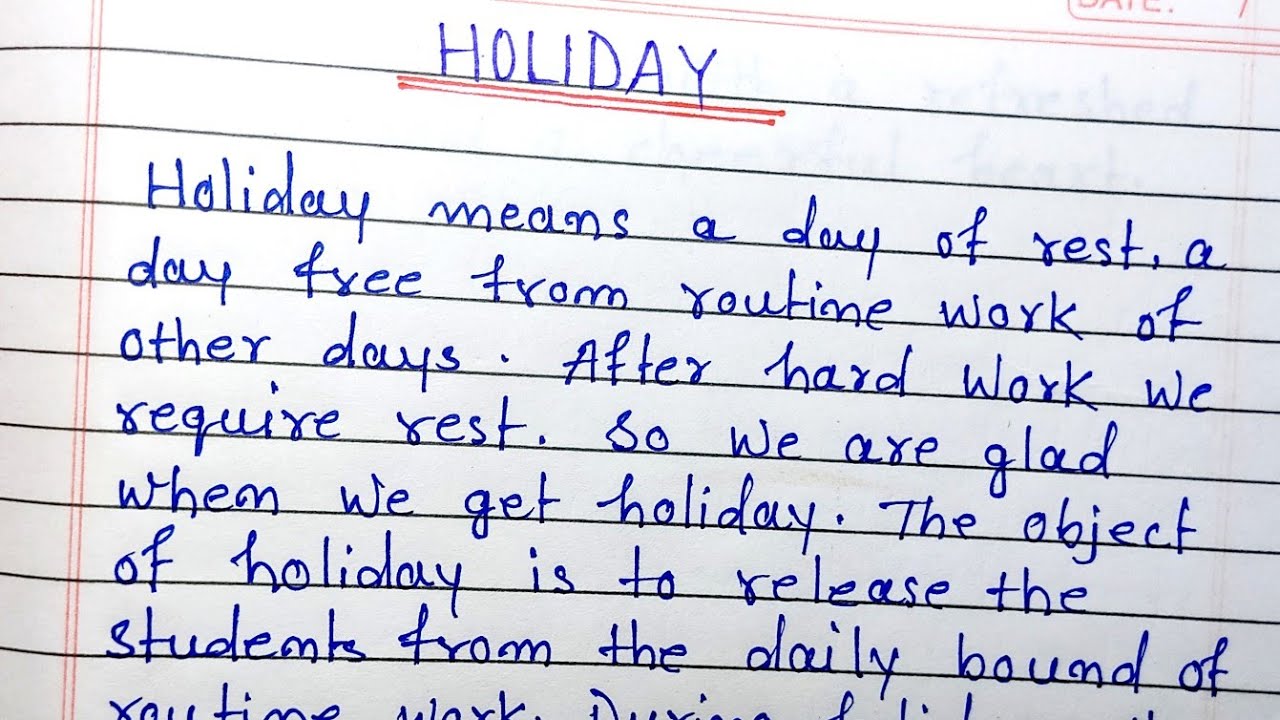 DATE:
HOLIDAY
Holiday means a day of rest, a
day free from routine work of
other days. After hard work we
require rest. So we are glad
when we get holiday. The object
of holiday is to release the
students from the daily bound of
routine work. During